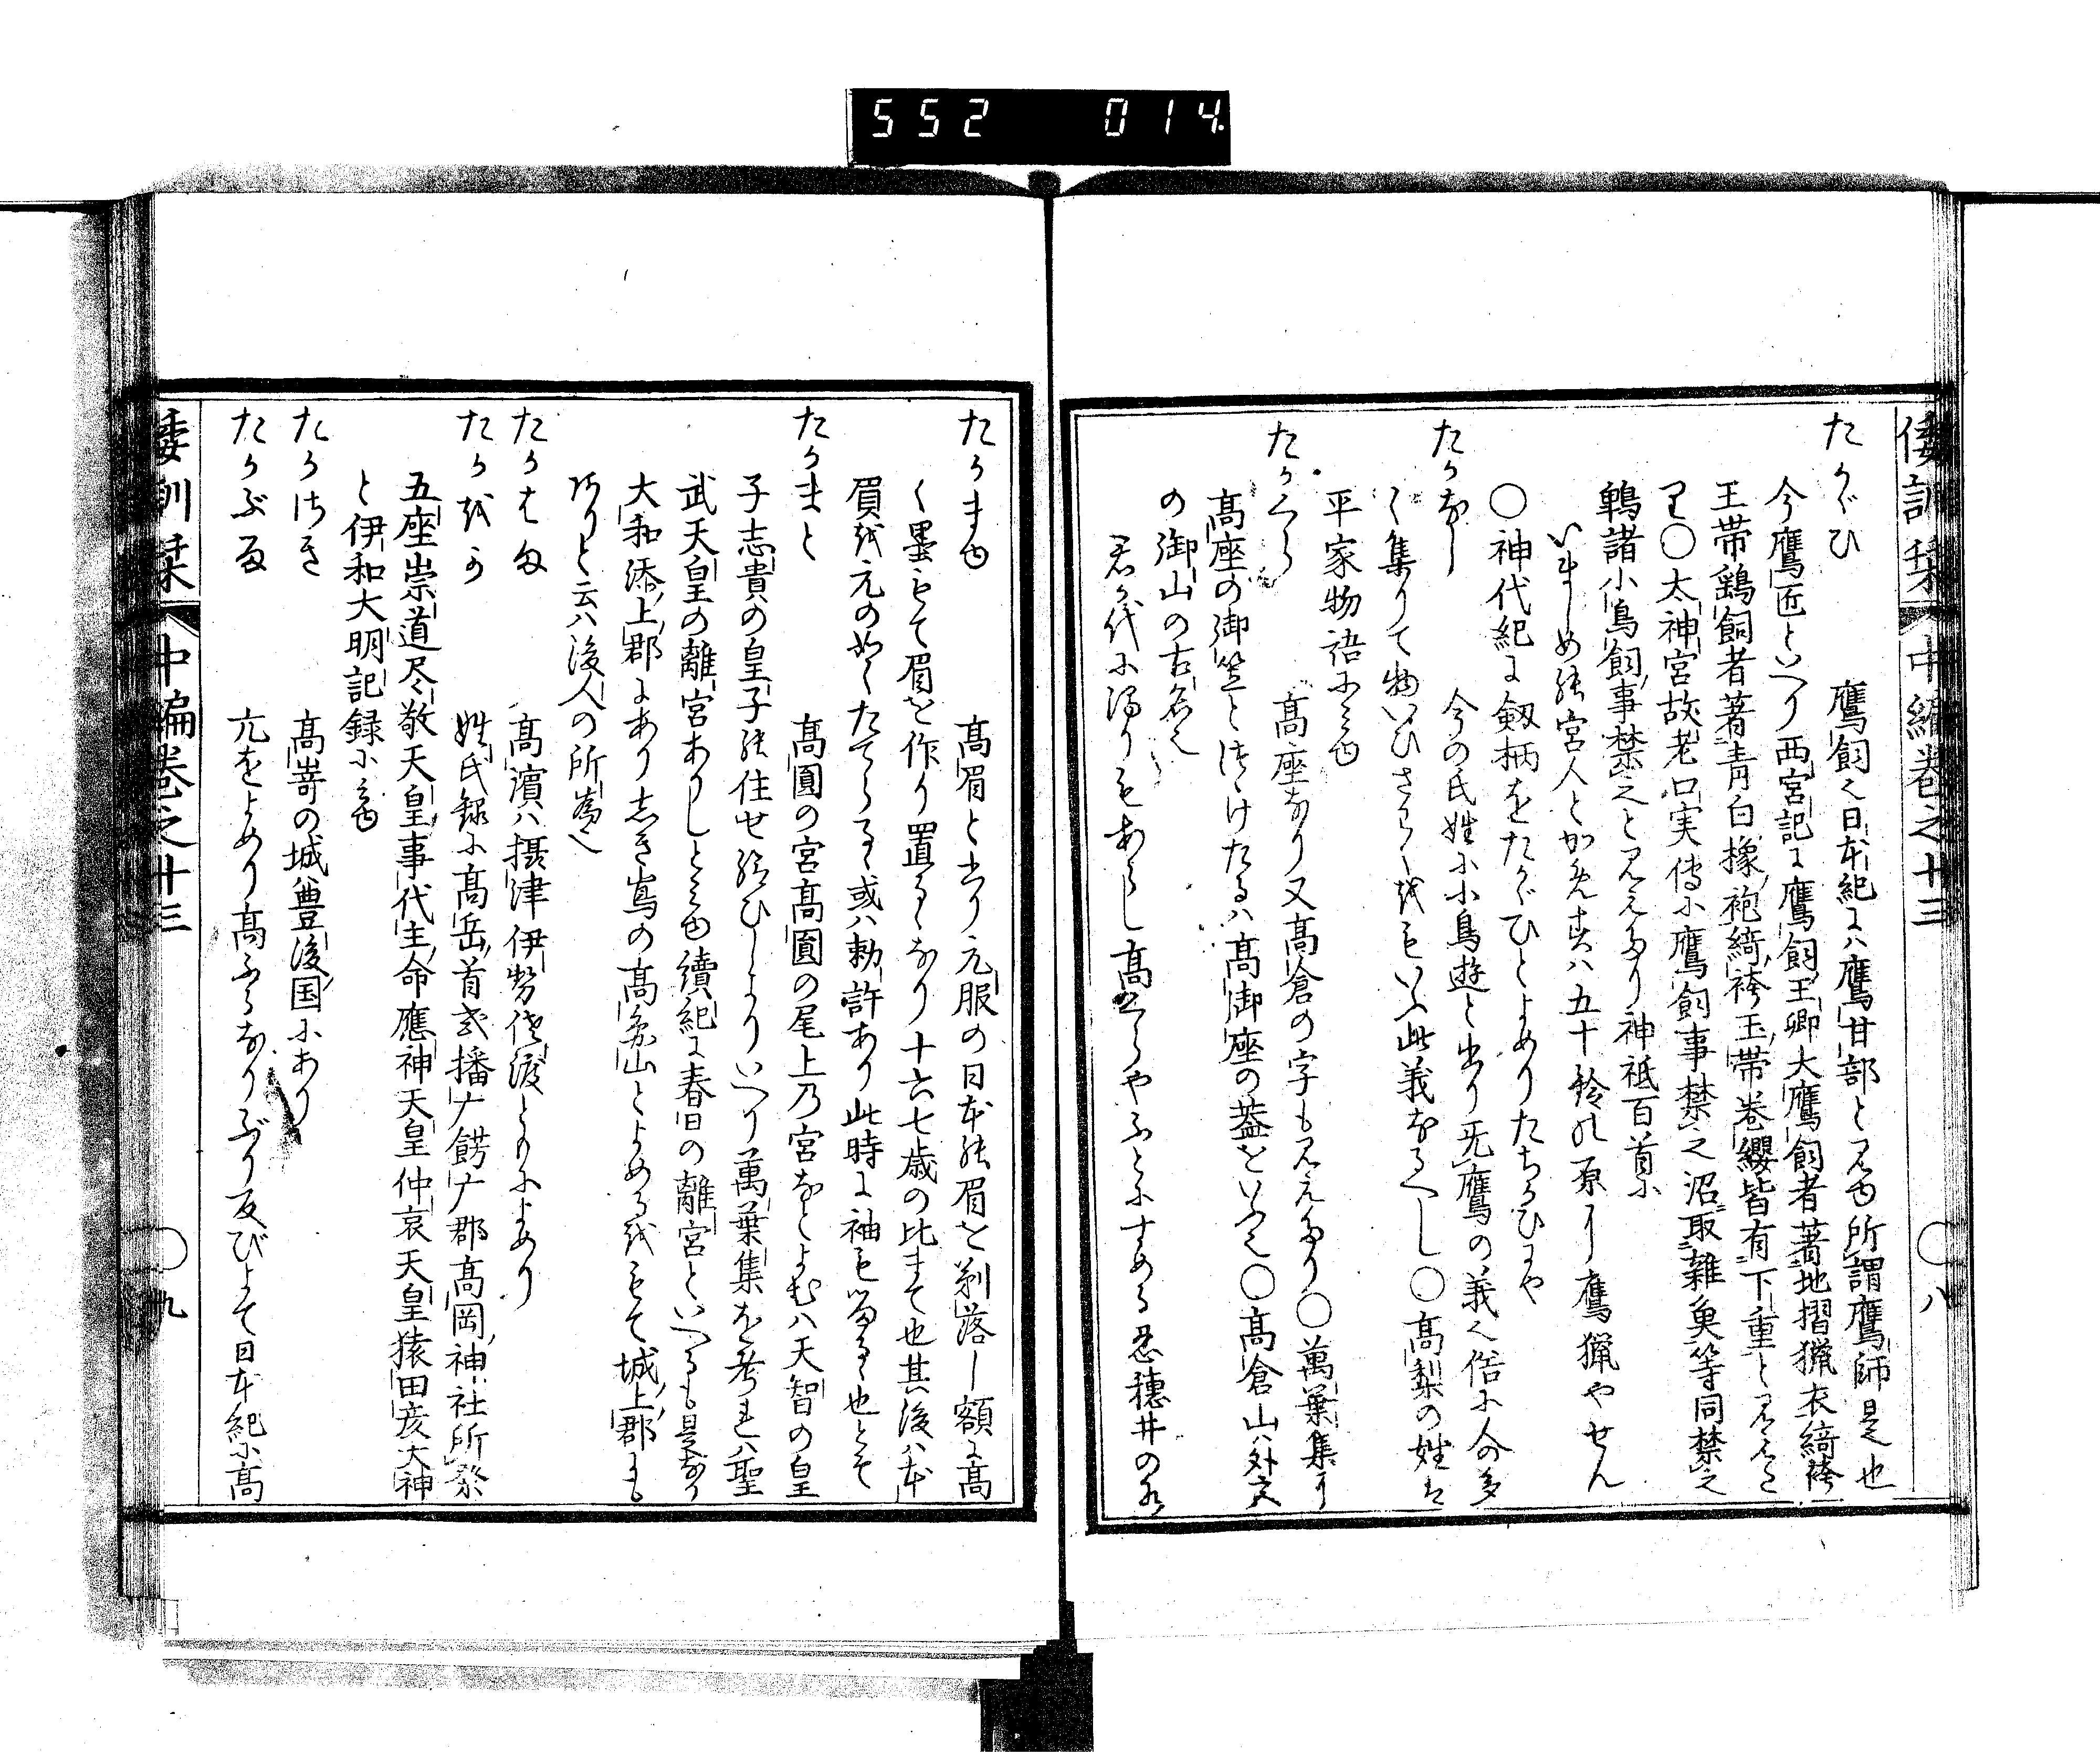 552 014.
倭訓栞 中編巻之十三 ○八
たかゞひ 鷹飼也日本紀に八鷹甘部と見ゆ所謂鷹師是也
今鷹匠といへり西宮記に鷹飼王卿大鷹飼者著地摺猟衣綺袴
玉帯鷂飼者著青白橡袍綺袴玉帯巻纓皆有下重と見えた
り○太神宮故老口実傳に鷹飼事禁之沼取雑魚等同禁之
鶴諸小鳥飼事禁之と見えたり神祇百首に
いましめぬ宮人とかえ五十鈴の原に鷹猟やせん
○神代紀に劔柄をたかゞひとよめりたちかひにや
たかなし 今の氏姓に小鳥遊と書り无鷹の義也俗に人の多
く集りて物いひさわくをもいふ此義なるへし○高梨の姓は
平家物語にみゆ
たかくら 高座なり又高倉の字も見えたり○萬葉集に
高座の御笠とつゝけたるハ高御座の蓋をいふ也○高倉山ハ外宮
の御山の古名也
君か代に濁りもあらし高くらやふもとにすめる忍穂井の水
たかまゆ 高眉と書り元服の日本の眉を剃落し額に高
く墨もて眉を作り置るゝなり十六七歳の比まて也其後ハ本
眉を元の如くたてらるゝ或ハ勅許あり此時に袖も留る也とそ
たかまと 高圓の宮高圓の尾上乃宮なとよむハ天智の皇
子志貴の皇子の住せ給ひしよりいへり萬葉集を考れハ聖
武天皇の離宮ありしとみゆ續紀に春日の離宮といへるも是なり
大和添上郡にありしき嶌の高圓山とよめるをもて城上郡にも
ありと云ハ後人の所為也
たかはま 高濱ハ摂津伊勢佐渡ともによめり
たかをか 姓氏録に高岳首或播广餝广郡高岡神社所祭
五座崇道尽敬天皇事代主命應神天皇仲哀天皇猿田彦大神
と伊和大明記録にみゆ
たかさき 高嵜の城豊後国にあり
たかぶる 亢をよめり高ふるなりぶり反びよて日本紀に高
倭訓栞 中編巻之十三 ○九